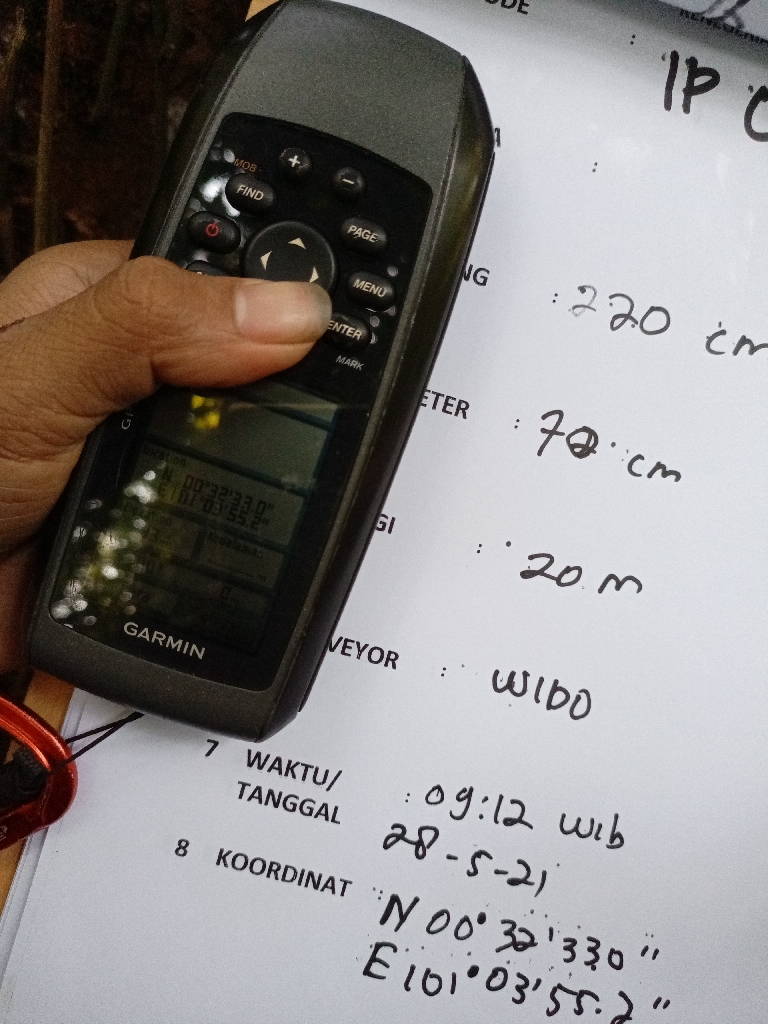 ODE
:
IP
:
NG : 220 cm
ETER : 72 cm
GI : 20 m
VEYOR : WIBO
7 WAKTU/
TANGGAL : 09:12 wib
28-5-21
8 KOORDINAT : N 00° 32' 33.0"
E 101° 03' 55.2"
MOB
FIND
+
-
PAGE
MENU
ENTER
MARK
Location
N 00°32'33.0"
E101°03'55.2"
GARMIN